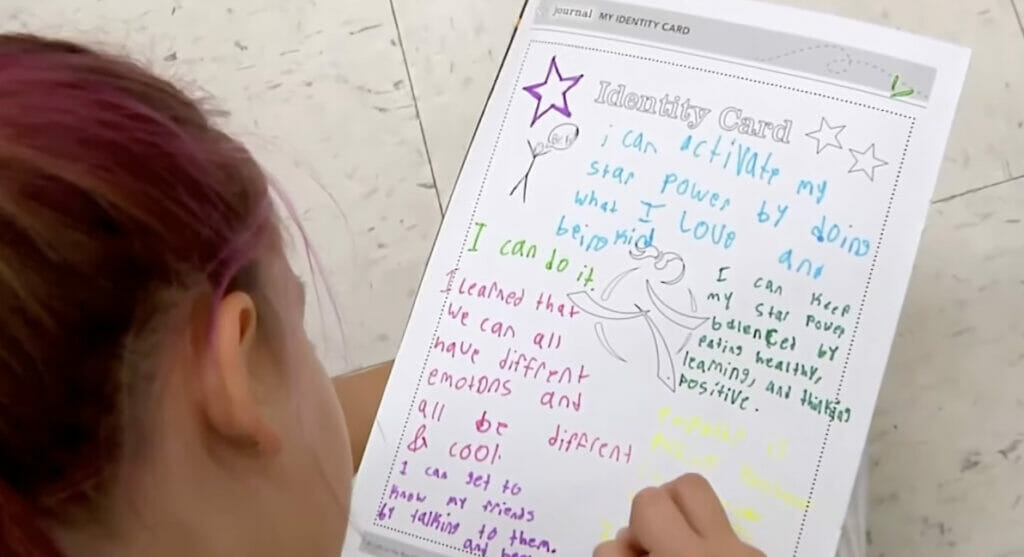 journal MY IDENTITY CARD
Identity Card
i can activate my
star power by doing
what I Love and
being kind
I can do it
I learned that
we can all
have different
emotons and
all be diffrent
& cool.
I can get to
know my friends
by talking to them.
and
I can keep
my star power
balenced by
eating healthy,
learning, and thinking
positive.